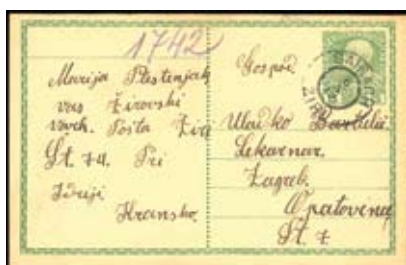 1742
Marija Plestenjak
vas Žirovski
vrh. Pošta Žiri
Št. 74. Pri
Idriji
Kransko.
Gospod.
Vladko Bartulić
Lekarnar.
Zagreb.
Opatovena
Št. 7